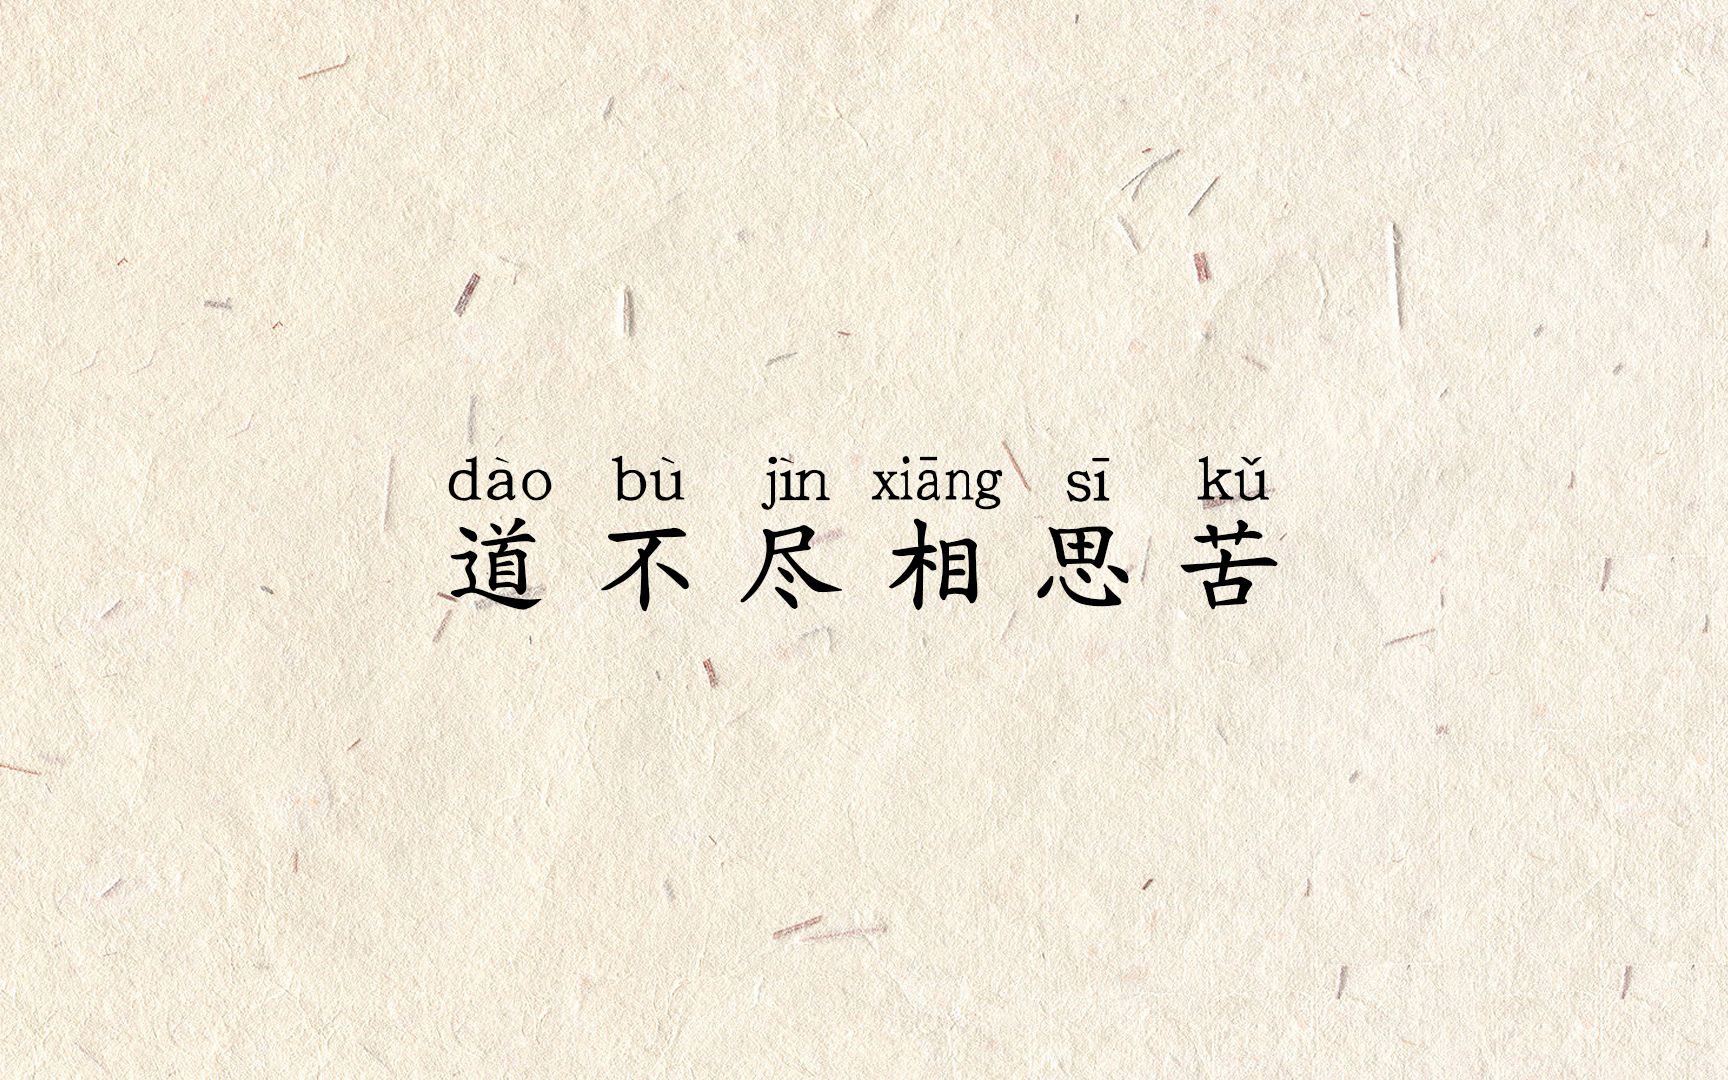 dào bù jìn xiāng sī kǔ
道不尽相思苦